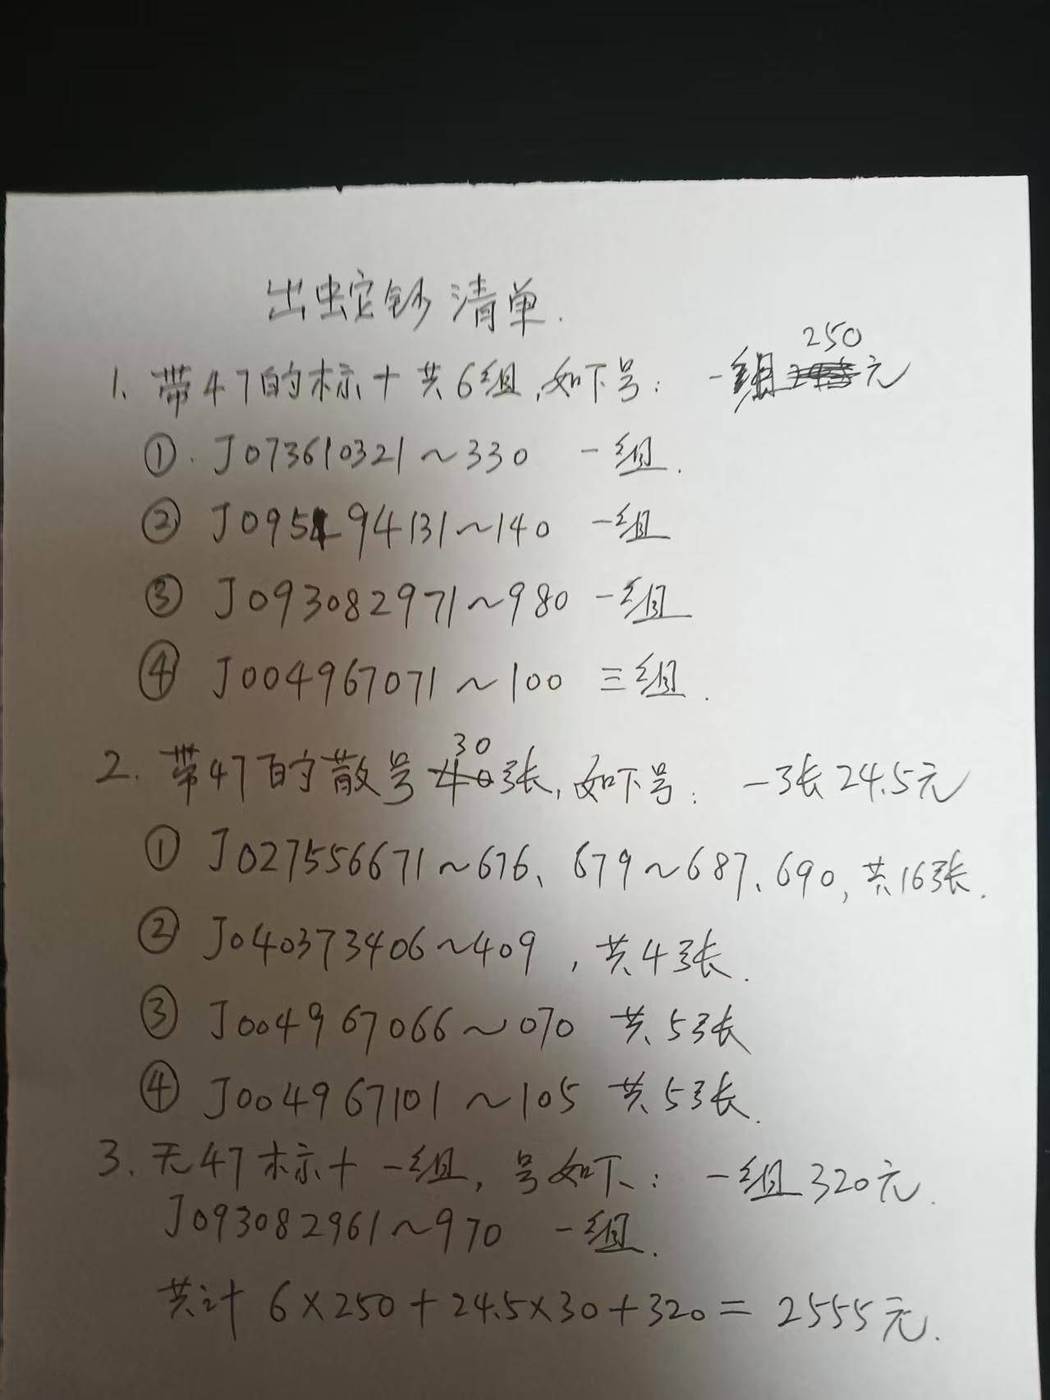 出蛇钞清单.
1. 带47的标十共6组,如下号: 一组250元
① J073610321~330 一组.
② J095494131~140 一组
③ J093082971~980 一组
④ J004967071~100 三组.
2. 带47的散号30张,如下号: 一张24.5元
① J027556671~676、679~687、690,共16张.
② J040373406~409,共4张.
③ J004967066~070 共5张
④ J004967101~105 共5张.
3. 无47标十一组,号如下: 一组320元.
J093082961~970 一组.
共计 6×250+24.5×30+320=2555元.